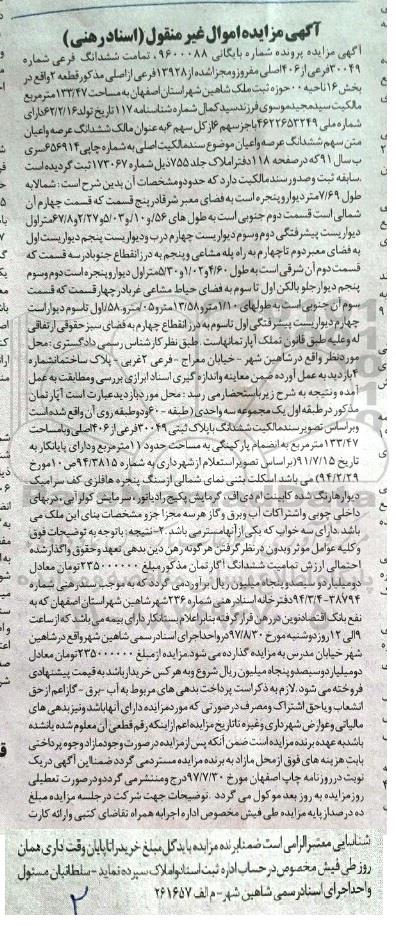 آگهی مزایده اموال غیر منقول (اسناد رهنی)
آگهی مزایده پرونده شماره بایگانی ۹۶۰۰۰۸۸، تمامت ششدانگ فرعی شماره
۳۰۰۴۹فرعی از۴۰۶اصلی مفروز و مجزا شده از۱۳۹۲۸فرعی از اصلی مذکور قطعه ۲واقع در
بخش ۱۶ناحیه ۰۰حوزه ثبت ملک شاهین شهر استان اصفهان به مساحت ۱۳۳/۴۷مترمربع
مالکیت سیدمجید موسوی فرزند سید کمال شماره شناسنامه ۱۱۷تاریخ تولد۶۲/۲/۱۶دارای
شماره ملی ۴۶۲۲۶۵۳۲۴۹باجز سهم ۶از کل سهم ۶به عنوان مالک ششدانگ عرصه واعیان
متن سهم ششدانگ عرصه واعیان موضوع سند مالکیت اصلی به شماره چاپی ۶۵۶۹۱۴سری
ب سال ۹۱که در صفحه ۱۱۸دفتر املاک جلد۷۵۵ذیل شماره ۱۷۳۰۶۷ثبت گردیده است
.سابقه ثبت وصدور سند مالکیت دارد که حدود ومشخصات آن بدین شرح است: شمالا به
طول ۷/۶۹متر دیوار و پنجره است به فضای معبر شرقا در پنج قسمت که قسمت چهارم آن
شمالی است قسمت دوم جنوبی است به طول های
دیواریست پیشرفتگی دوم وسوم دیواریست چهارم درب ودیواریست پنجم دیواریست اول
به فضای معبر دوم تاچهارم به راه پله مشاعی و پنجم به درزانقطاع جنوبا در سه قسمت که
قسمت دوم آن شرقی است به طول
پنجم دیوار جلو بالکن اول تا سوم به فضای حیاط مشاعی غربا در چهار قسمت که قسمت
سوم آن جنوبی است به طولهای
چهارم دیواریست پیشرفتگی اول تاسوم به درز انقطاع چهارم به فضای سبز حقوق ارتفاقی
له وعلیه طبق قانون تملک آپارتمانهاست. طبق نظر کارشناس رسمی دادگستری: محل
مورد نظر واقع در شاهین شهر - خیابان معراج - فرعی ۲غربی - پلاک ساختمان شماره
۴بازدید به عمل آورده ضمن معاینه و اندازه گیری اسناد ابرازی بررسی ومطابقت به عمل
آمده ونتیجه به شرح زیر باستحضار می رسد: محل مورد بازدید عبارت است آپارتمان
مذکور در طبقه اول یک مجموعه سه واحدی (طبقه -۶۰و دو طبقه روی آن واقع شده است
وبراساس تصویر سند مالکیت ششدانگ با پلاک ثبتی ۳۰۰۴۹فرعی از ۴۰۶اصلی وبامساحت
۱۳۳/۴۷مترمربع به انضمام پارکینگی به مساحت حدود ۱۱مترمربع ودارای پایانکار به
تاریخ ۹۱/۷/۱۵(براساس تصویر استعلام از شهرداری به شماره ۹۴/۳۸۱۵ص۱۰مورخ
۹۴/۲/۲۹) می باشد اسکلت بتنی نمای شمالی از سنگ پنجره ها فلزی کف سرامیک
دیوارها رنگ شده کابینت ام دی اف، گرمایش پکیج رادیاتور، سرمایش کولر آبی، دربهای
داخلی چوبی واشتراکات آب وبرق وگاز هر سه مجزا جزو مشخصات بنای این ملک می
باشد.دارای سه خواب که یکی از آنها مستر می باشد.۲-نتیجه: با توجه به توضیحات فوق
وکلیه عوامل موثر وبدون در نظر گرفتن هر گونه رهن دین بدهی تعهد وحقوق واگذار شده
احتمالی ارزش تمامیت ششدانگ آپارتمان مذکور مبلغ ۲۳۵۰۰۰۰۰۰تومان معادل
دو میلیارد و سیصد و پنجاه میلیون ریال براورد می گردد که به موجب سند رهنی شماره
۳۸۷۹۴-۹۴/۳/۴دفترخانه اسناد رهنی شماره ۲۳۶شهر شاهین شهر استان اصفهان که به
نفع بانک اقتصاد نوین در رهن قرار گرفته بنابراعلام بستانکار دارای بیمه می باشد که از ساعت
۹الی ۱۲روز دوشنبه مورخ ۹۷/۸/۳۰درواحد اجرای اسناد رسمی شاهین شهر واقع در شاهین
شهر خیابان مدرس به مزایده گذارده می شود.مزایده از مبلغ ۲۳۵۰۰۰۰۰۰تومان معادل
دو میلیارد و سیصد و پنجاه میلیون ریال شروع وبه هر کس خریدار باشد به قیمت پیشنهادی
فروخته می شود.لازم به ذکر است پرداخت بدهی های مربوط به آب -برق - گاز اعم از حق
انشعاب ویا حق اشتراک ومصرف در صورتی که مورد مزایده دارای آنها باشد ونیز بدهی های
مالیاتی وعوارض شهرداری وغیره تا تاریخ مزایده اعم از اینکه رقم قطعی آن معلوم شده یا نشده
باشد به عهده برنده مزایده است ضمن آنکه پس از مزایده در صورت وجود مازاد وجوه پرداختی
بابت هزینه های فوق از محل مازاد به برنده مزایده مسترد می گردد ضمنا این آگهی در یک
نوبت در روزنامه چاپ اصفهان مورخ ۹۷/۷/۳۰درج ومنتشر می گردد و در صورت تعطیلی
روز مزایده به روز بعد موکول می گردد .توضیحات جهت شرکت در جلسه مزایده مبلغ
ده درصد از پایه مزایده طی فیش مخصوص اداره اجرا به همراه تقاضای کتبی و ارائه کارت
شناسایی معتبر الزامی است ضمنا برنده مزایده باید کل مبلغ خرید را تا پایان وقت اداری همان
روز طی فیش مخصوص در حساب اداره ثبت اسناد واملاک سپرده نماید - سلطانیان مسئول
واحد اجرای اسناد رسمی شاهین شهر- م الف ۲۶۱۶۵۷
۲